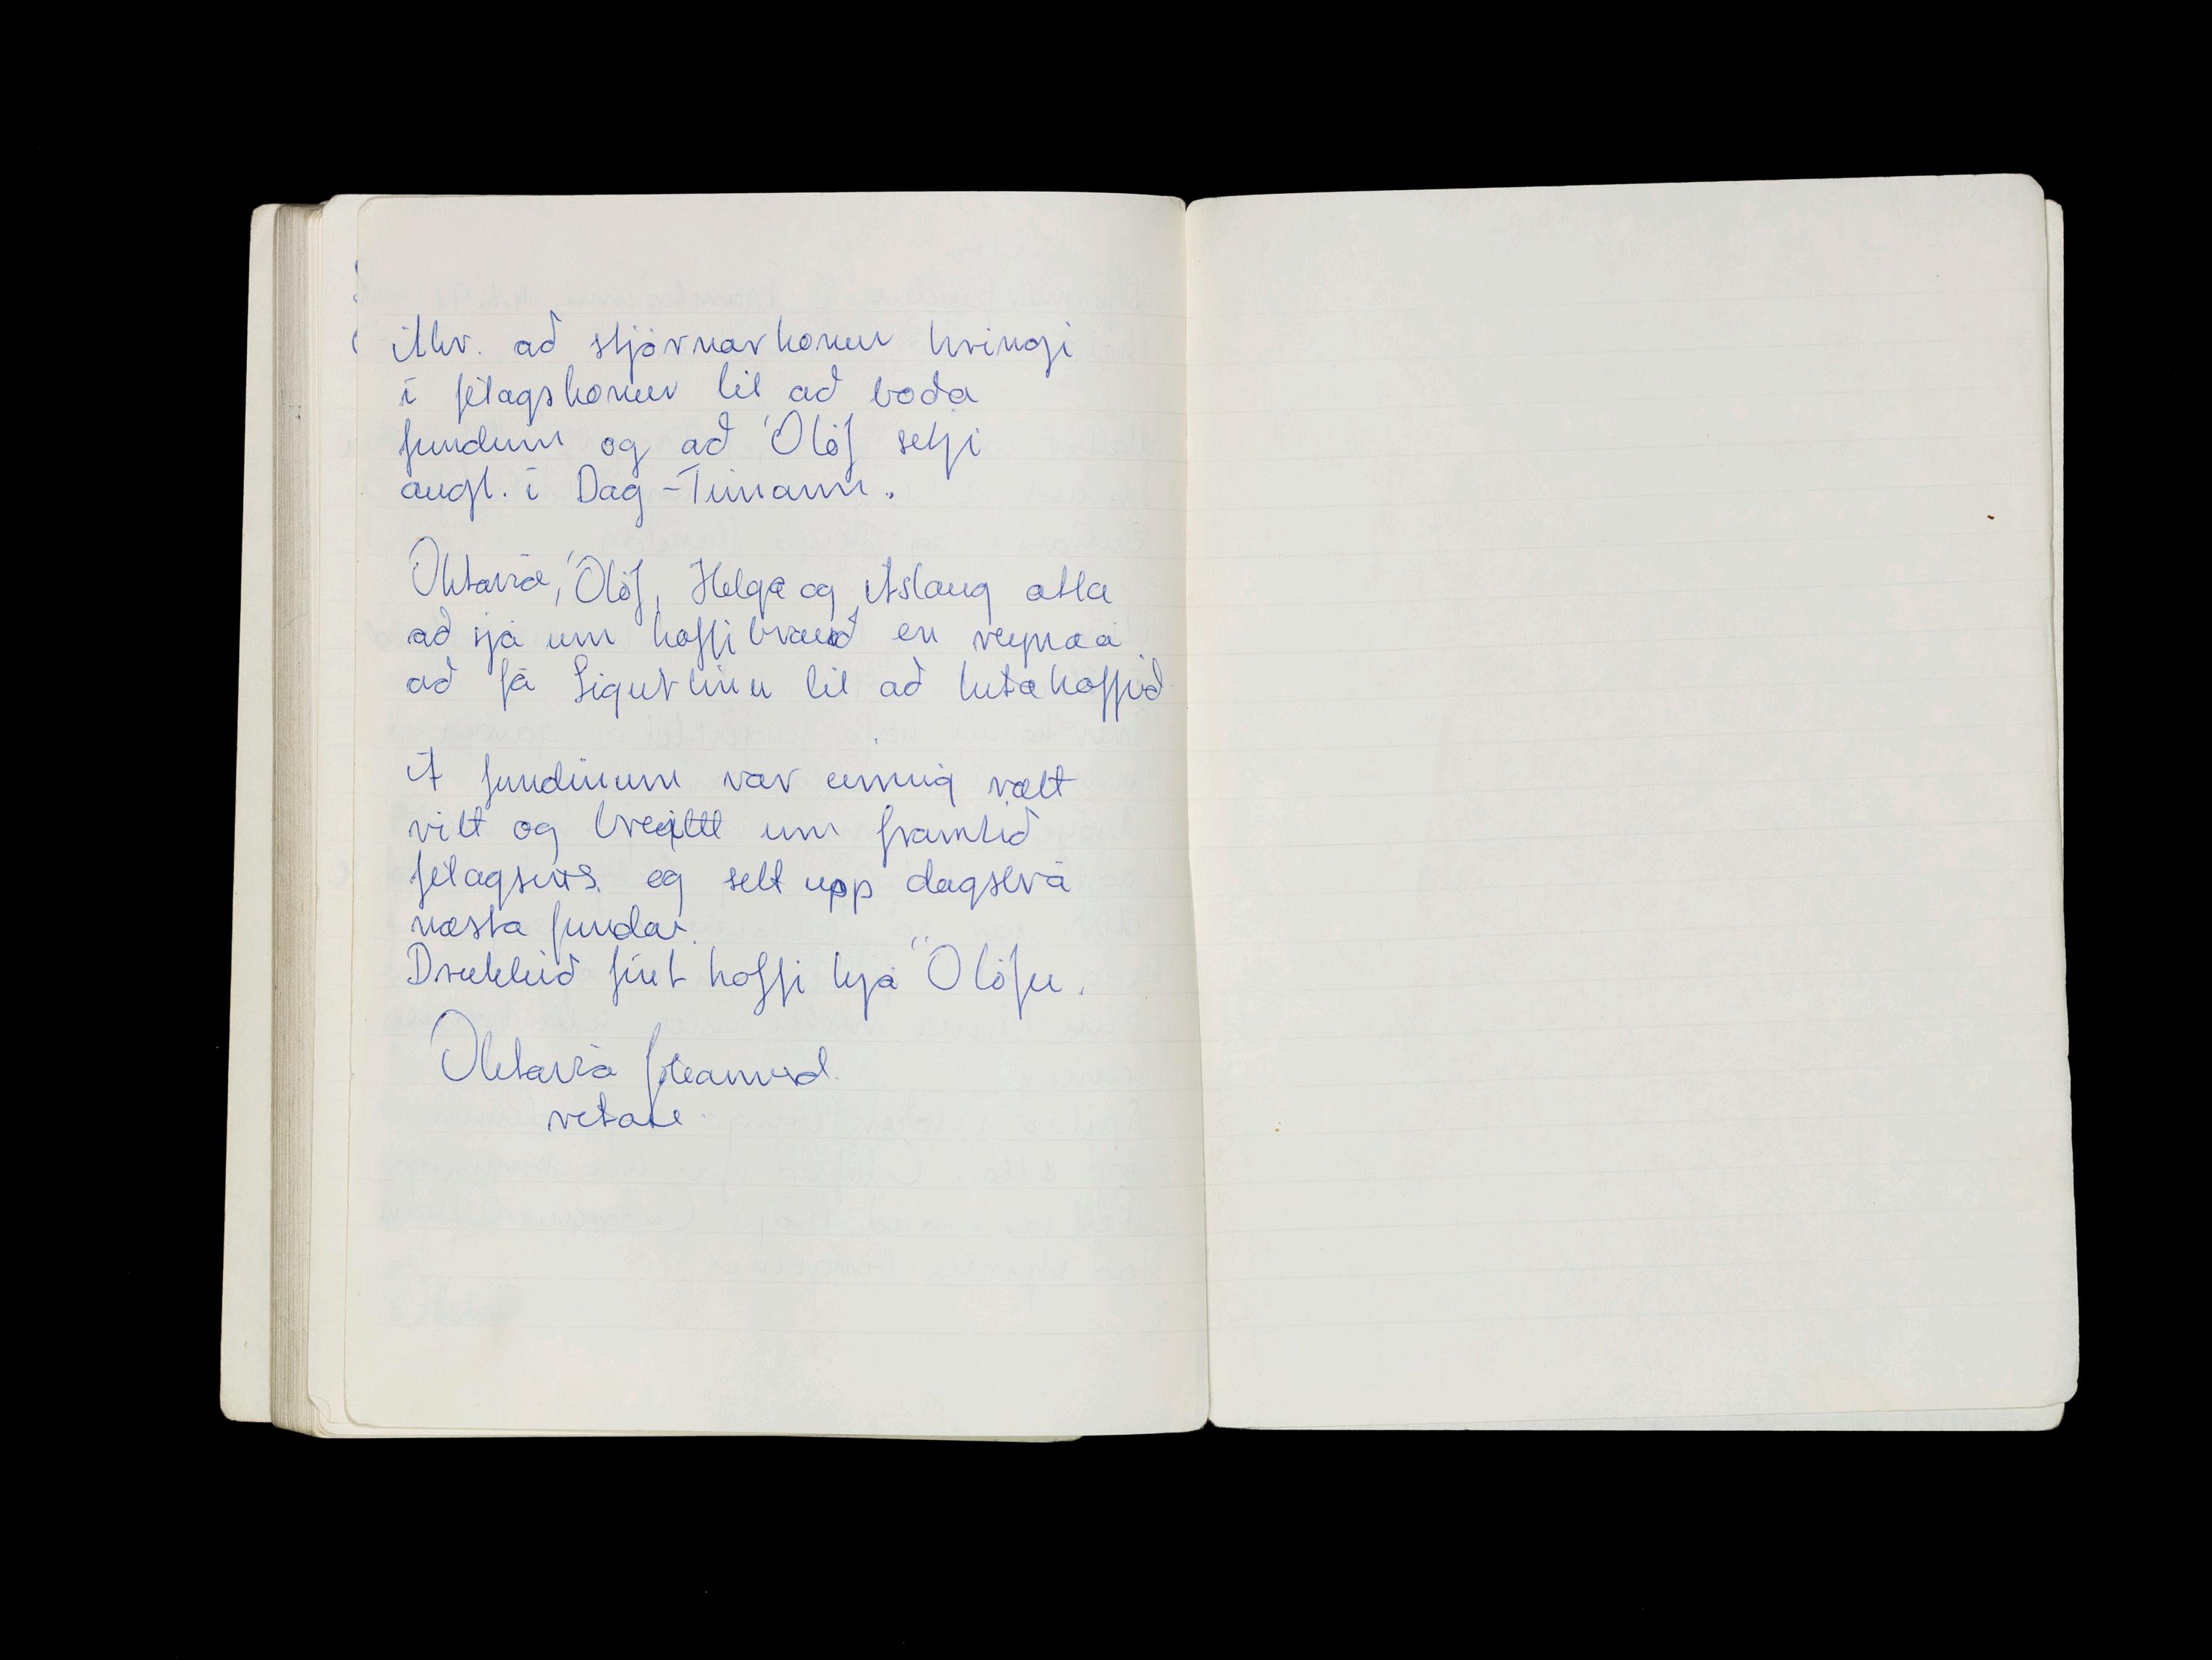 Ákv. að stjórnarkonur hringi
í félagskonur til að boða
fundinn og að Ólöf setji
augl. í Dag-Tímann.
Oktavía, Ólöf, Helga og Áslaug ætla
að sjá um kaffibrauð en reyna á
að fá Sigurlínu til að hita kaffið
Á fundinum var einnig rætt
vítt og breitt um framtíð
félagsins og sett upp dagskrá
næsta fundar.
Drukkið fínt kaffi hjá Ólöfu.
Oktavía
ritari